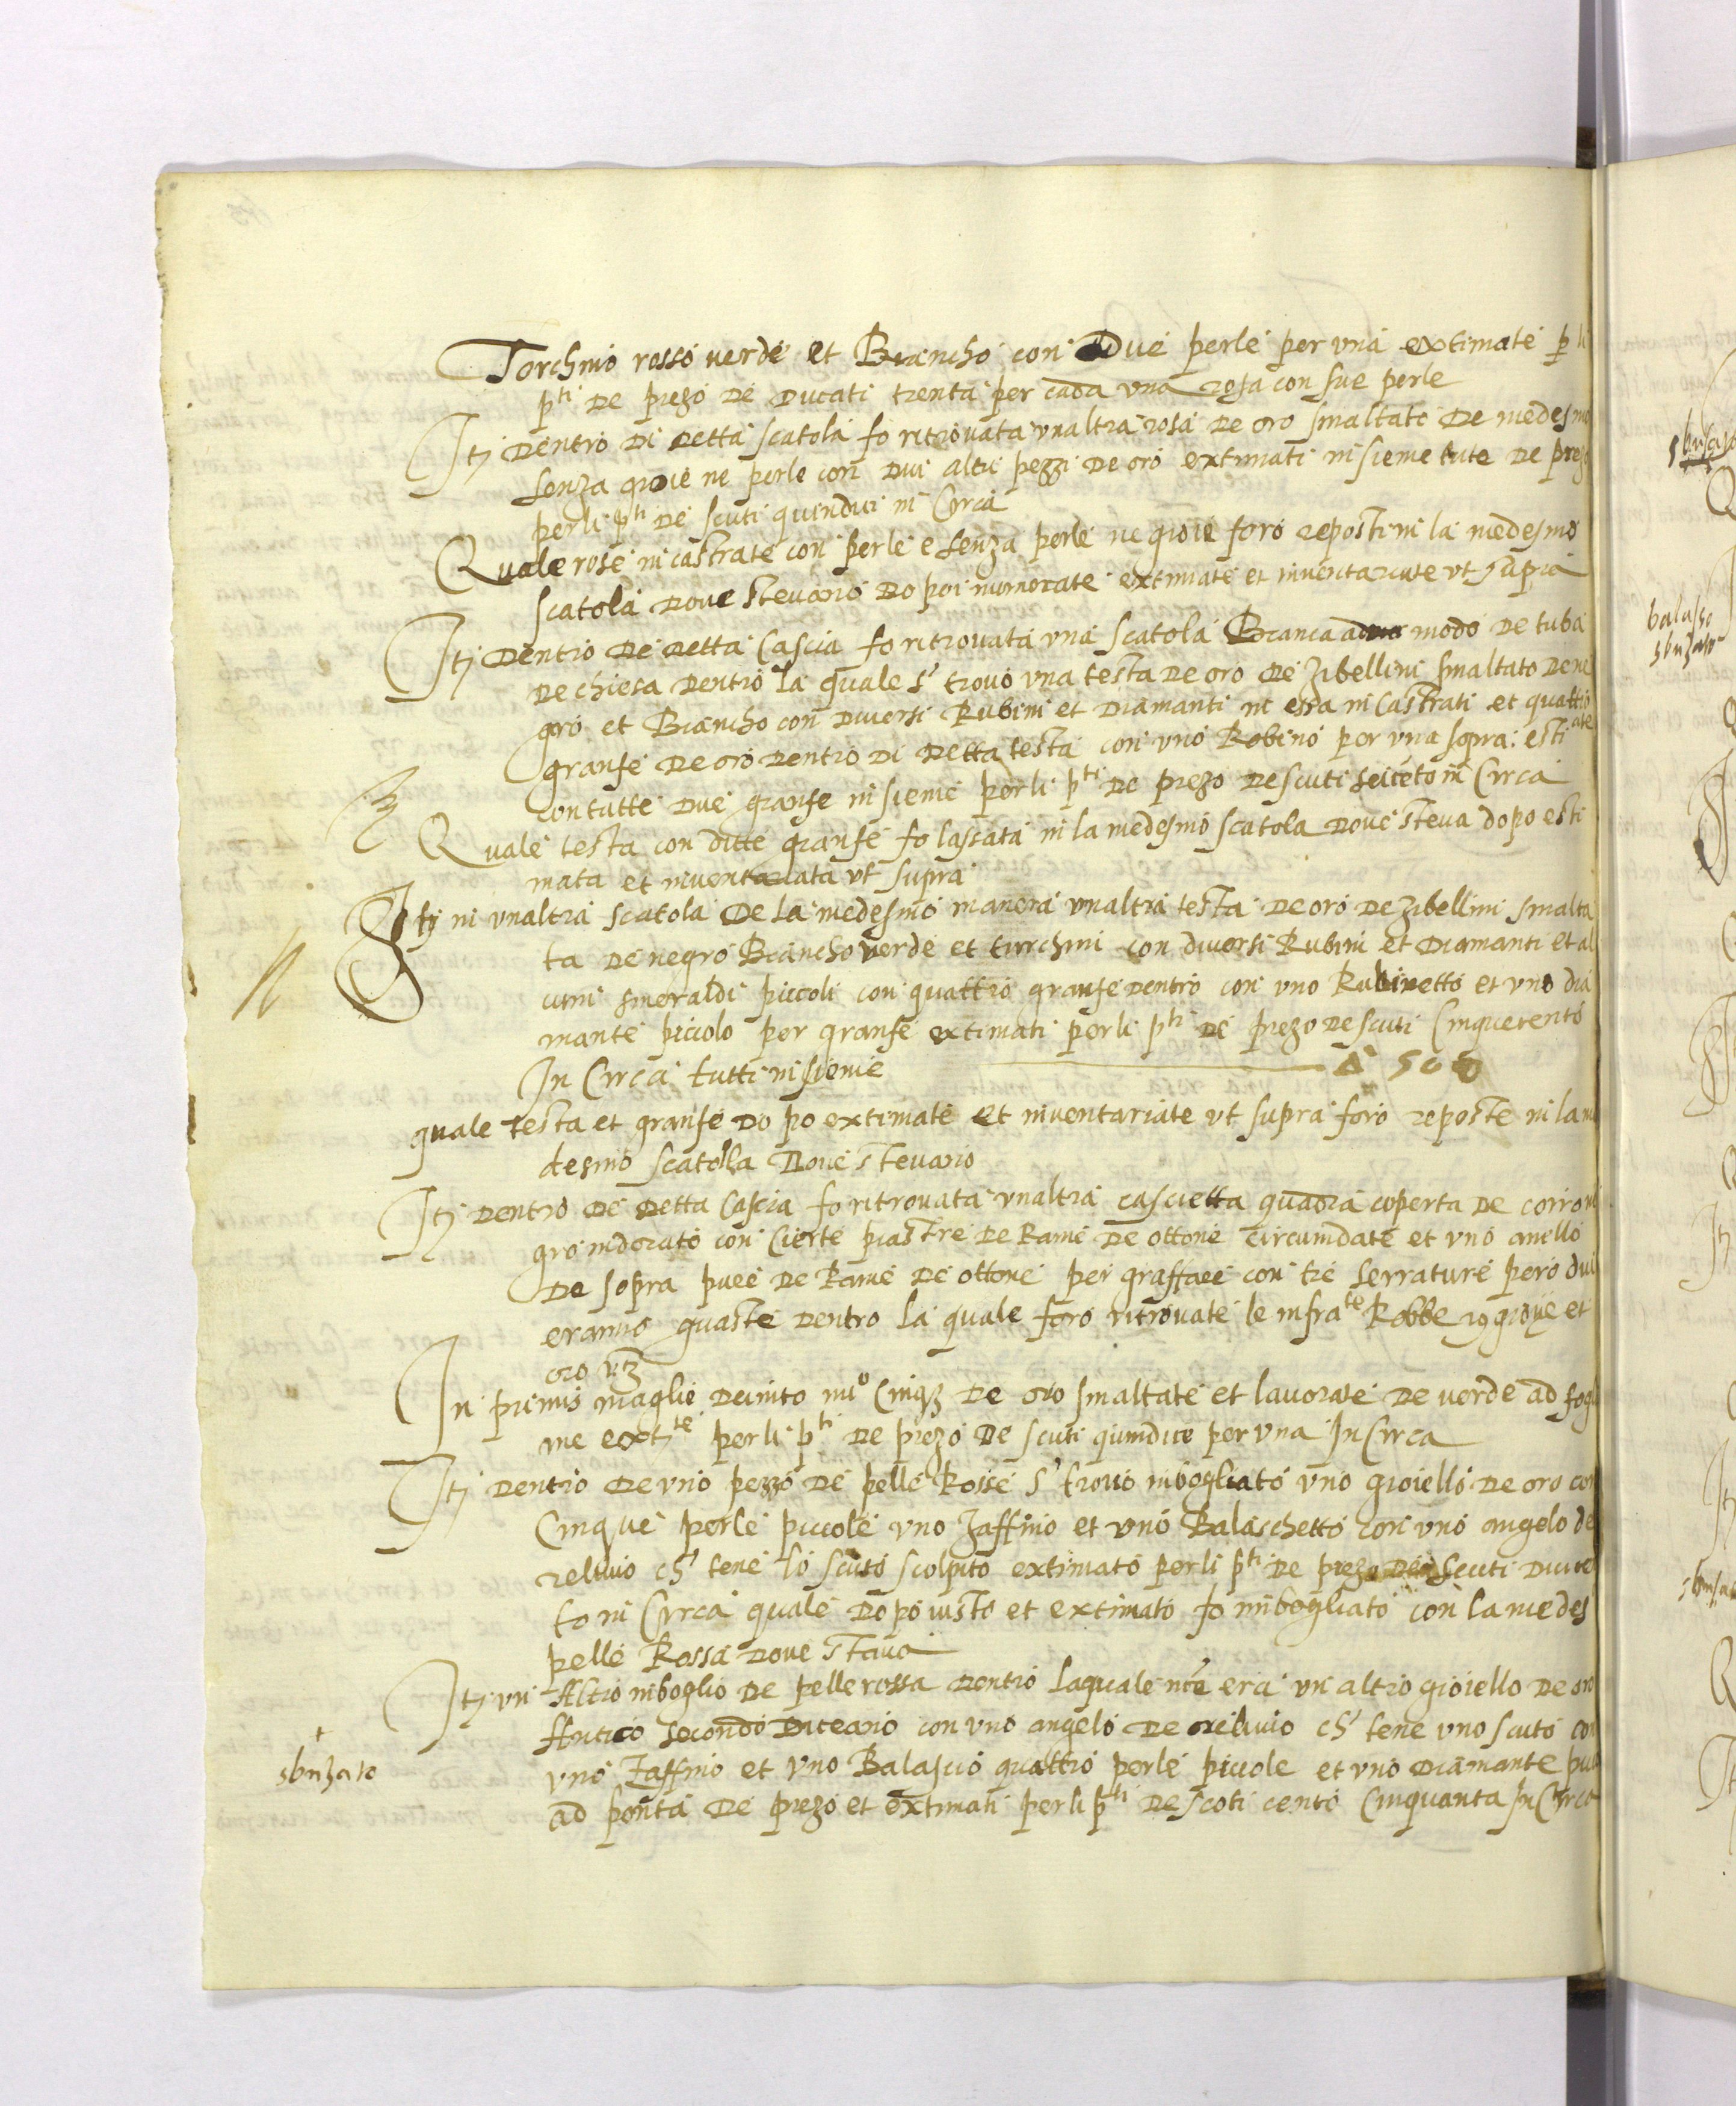 Torchino rosso verde et Biancho con Due perle per una extimate per li
p.ti De prezo De Ducati trenta per cada una rosa con sue perle
Itȝ Dentro Di Detta scatola fo ritrovata unaltra rosa De oro smaltato De medesmo
senza gioie ne perle con Dui altri pezzi De oro extimati insieme tute De prezo
per li p.ti De scuti quindici in Circa
Quale rose incastrate con perle e senza perle ne gioie foro reposti in la medesmo
scatola Dove stevano Dopoi numerate extimate et inventariate ut supra
Itȝ Dentro De Detta Cascia fo ritrovata una scatola Bianca ad modo De tuba
De chiesa Dentro la quale s' trovò una testa De oro De Zibellini smaltato De ne
gro et Biancho con Diversi Rubini et Diamanti in essa incastrati et quattro
granfe De oro Dentro Di Detta testa con uno Robino per una sopra: esti ate
con tutte Due granfe insieme per li p.ti De prezo De scuti seicēto in Circa
Quale testa con ditte granfe fo lassata in la medesmo scatola Dove steva dopo esti
mata et inventariata ut supra
Itȝ in unaltra scatola De la medesmo manera unaltra testa De oro De Zibellini smalta
ta De negro Biancho verde et turchini con diversi Rubini et Diamanti et al
cuni smeraldi piccoli con quattro granfe Dentro con uno Rubinetto et uno dia
mante piccolo per granfe extimati per li p.ti De prezo De scuti Cinquecento
In Circa tutti insieme Δ 500
quale testa et granfe Dopo extimate et inventariate ut supra foro reposte in la me
desmo scatolla Dove stevano
Itȝ Dentro De Detta Cascia fo ritrovata unaltra cascietta quadra coperta De corio ne
gro indorato con Cierte piastre De Rame De ottone circumdate et uno anello
De sopra pure De Rame De ottone per graffare con tre serrature pero dui
eranno guaste Dentro la quale foro ritrovate le infra.te Robbe gioye et
oro vȝ
In primis maglie De cinto nu.o Cinqȝ De oro smaltate et lavorate De verde ad fogl
me ext.te per li p.ti De prezo De scuti quindice per una In Circa
Itȝ Dentro De uno pezzo De pelle Rosse s' trovò inbogliato uno gioiello De oro con
Cinque perle piccole uno Zaffino et uno Balaschetto con uno angelo de
relivio ch' tene lo scuto scolpito extimato per li p.ti De prezo De scuti Ducē
to in Circa quale Dopo visto et extimato fo inbogliato con la medes
pelle Rossa Dove stava
Itȝ un Altro inboglio De pelle rossa Dentro la quale nce era un altro gioiello De oro
Antico secondo Diceano con uno angelo De relivio ch' tene uno scuto con
sbusato
uno Zaffino et uno Balascio quattro perle piccole et uno Diamante
ad ponta De prezo et extimati per li p.ti De scoti cento Cinquanta In Circa
sbusato
balasso
sbusato